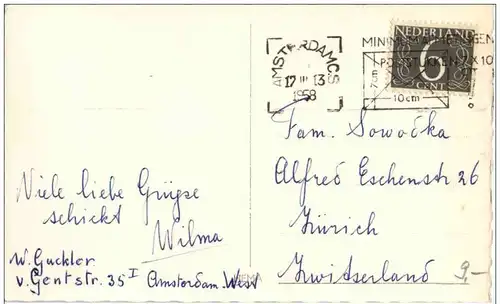 AMSTERDAM CS
17 III 13
1958
MINIMUM AFMETINGEN
POSTSTUKKEN 7 X 10
10 cm
NEDERLAND
6
CENT
Fam. Sowočka
Alfred Eschenstr 26
Zürich
Zwitserland
9,-
Viele liebe Grüße
schickt
Wilma
W. Guckler
v. Gentstr. 35 I Amsterdam-West